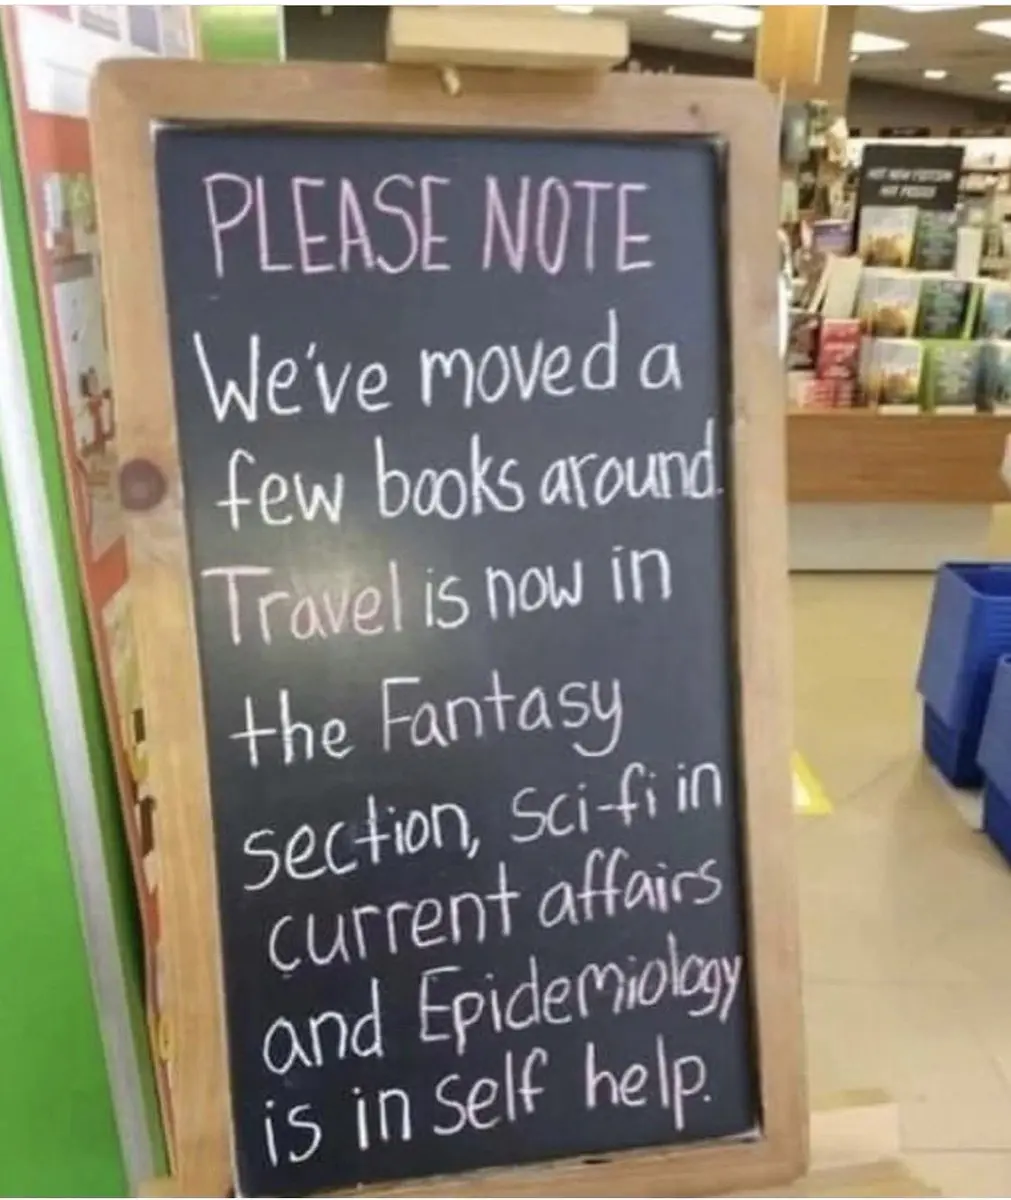 PLEASE NOTE
We've moved a
few books around.
Travel is now in
the Fantasy
section, sci-fi in
current affairs
and Epidemiology
is in self help.